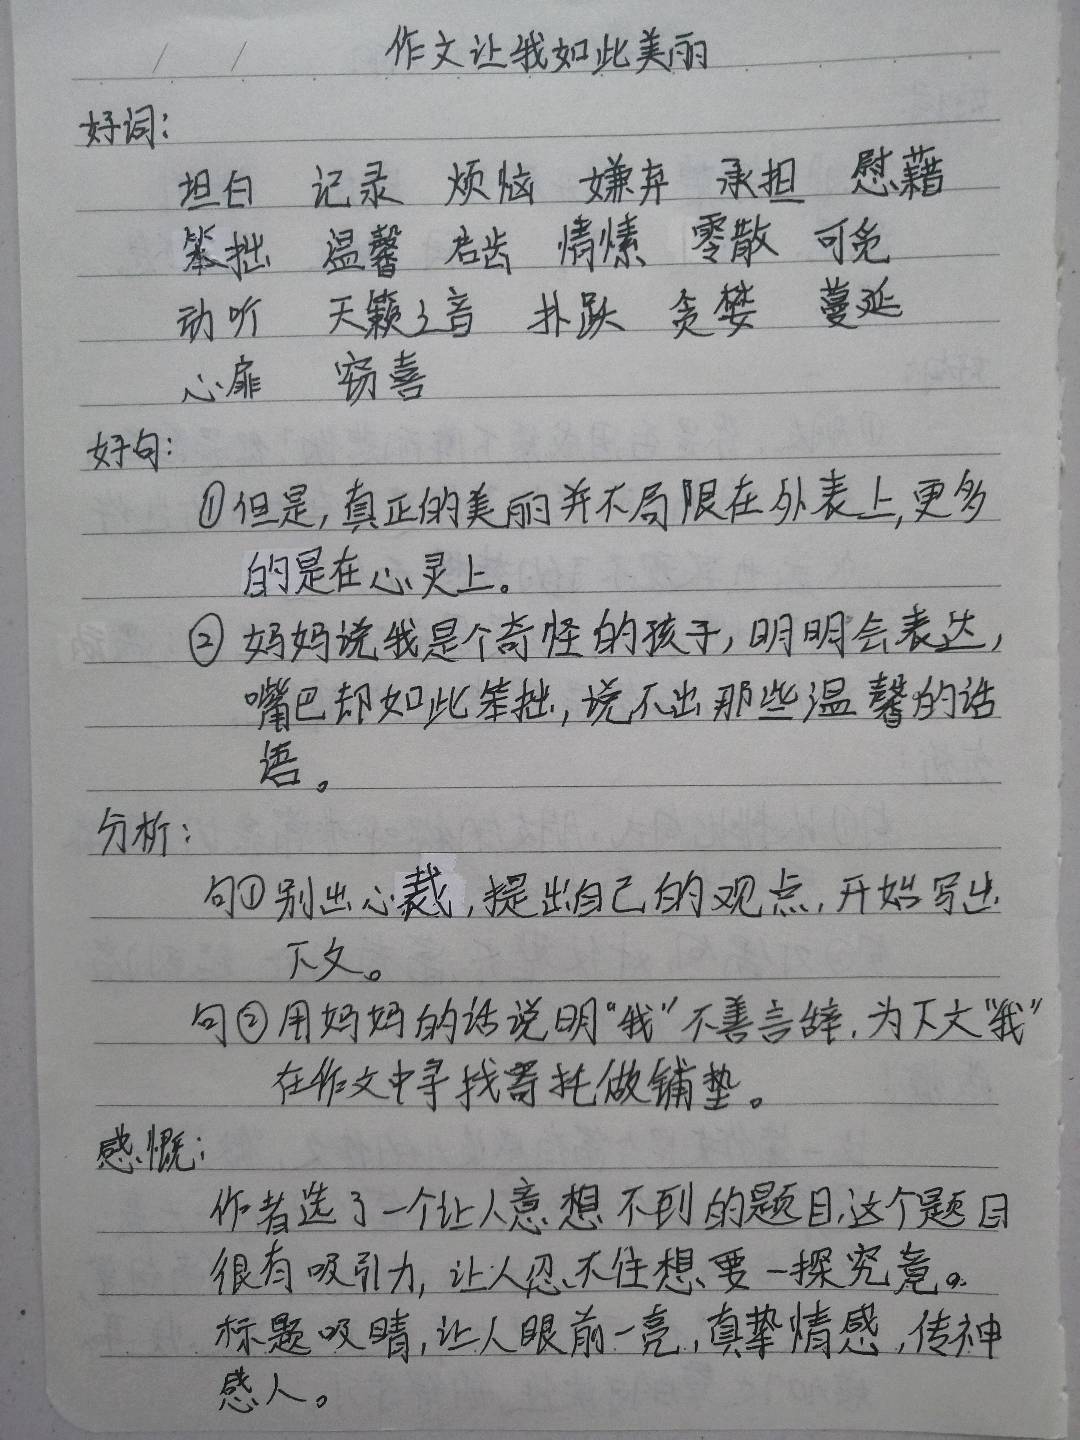 作文让我如此美丽
好词：
坦白 记录 烦恼 嫌弃 承担 慰藉
笨拙 温馨 启齿 情愫 零散 可免
动听 天籁之音 扑跌 贪婪 蔓延
心扉 窃喜
好句：
①但是，真正的美丽并不局限在外表上，更多
的是在心灵上。
②妈妈说我是个奇怪的孩子，明明会表达，
嘴巴却如此笨拙，说不出那些温馨的话
语。
分析：
句①别出心裁，提出自己的观点，开始写出
下文。
句②用妈妈的话说明“我”不善言辞，为下文“我”
在作文中寻找寄托做铺垫。
感慨：
作者选了一个让人意想不到的题目，这个题目
很有吸引力，让人忍不住想要一探究竟。
标题吸睛，让人眼前一亮，真挚情感，传神
感人。